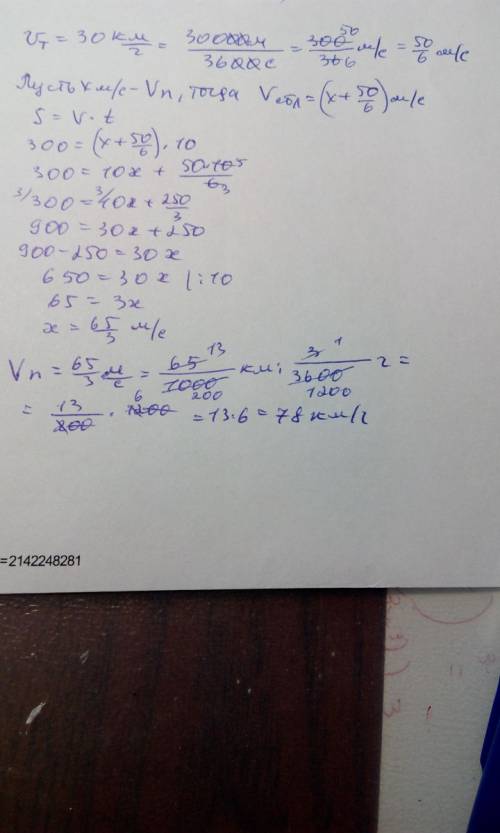 Vт = 30 км/г = 30000м/3600с = 300 50/36 6 м/с = 50/6 м/с
Пусть x м/с - Vп, тогда Vсбл = (x + 50/6) м/с
S = V · t
300 = (x + 50/6) · 10
300 = 10x + 50·10 5/6 3
3/300 = 3/10x + 250/3
900 = 30x + 250
900 - 250 = 30x
650 = 30x |:10
65 = 3x
x = 65/3 м/с
Vп = 65/3 м/с = 65 13/1000 200 км : 3 1/3600 1200 г =
= 13/200 · 1200 6 = 13·6 = 78 км/г
=2142248281